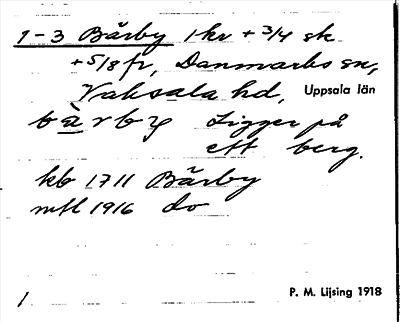 1-3 Bärby 1 kr + 3/4 sk
+ 5/8 fr, Danmarks sn,
Vaksala hd, Uppsala län
bä̀rby Ligger på
ett berg.
kb 1711 Bärby
mtl 1916 do
1 P. M. Lijsing 1918